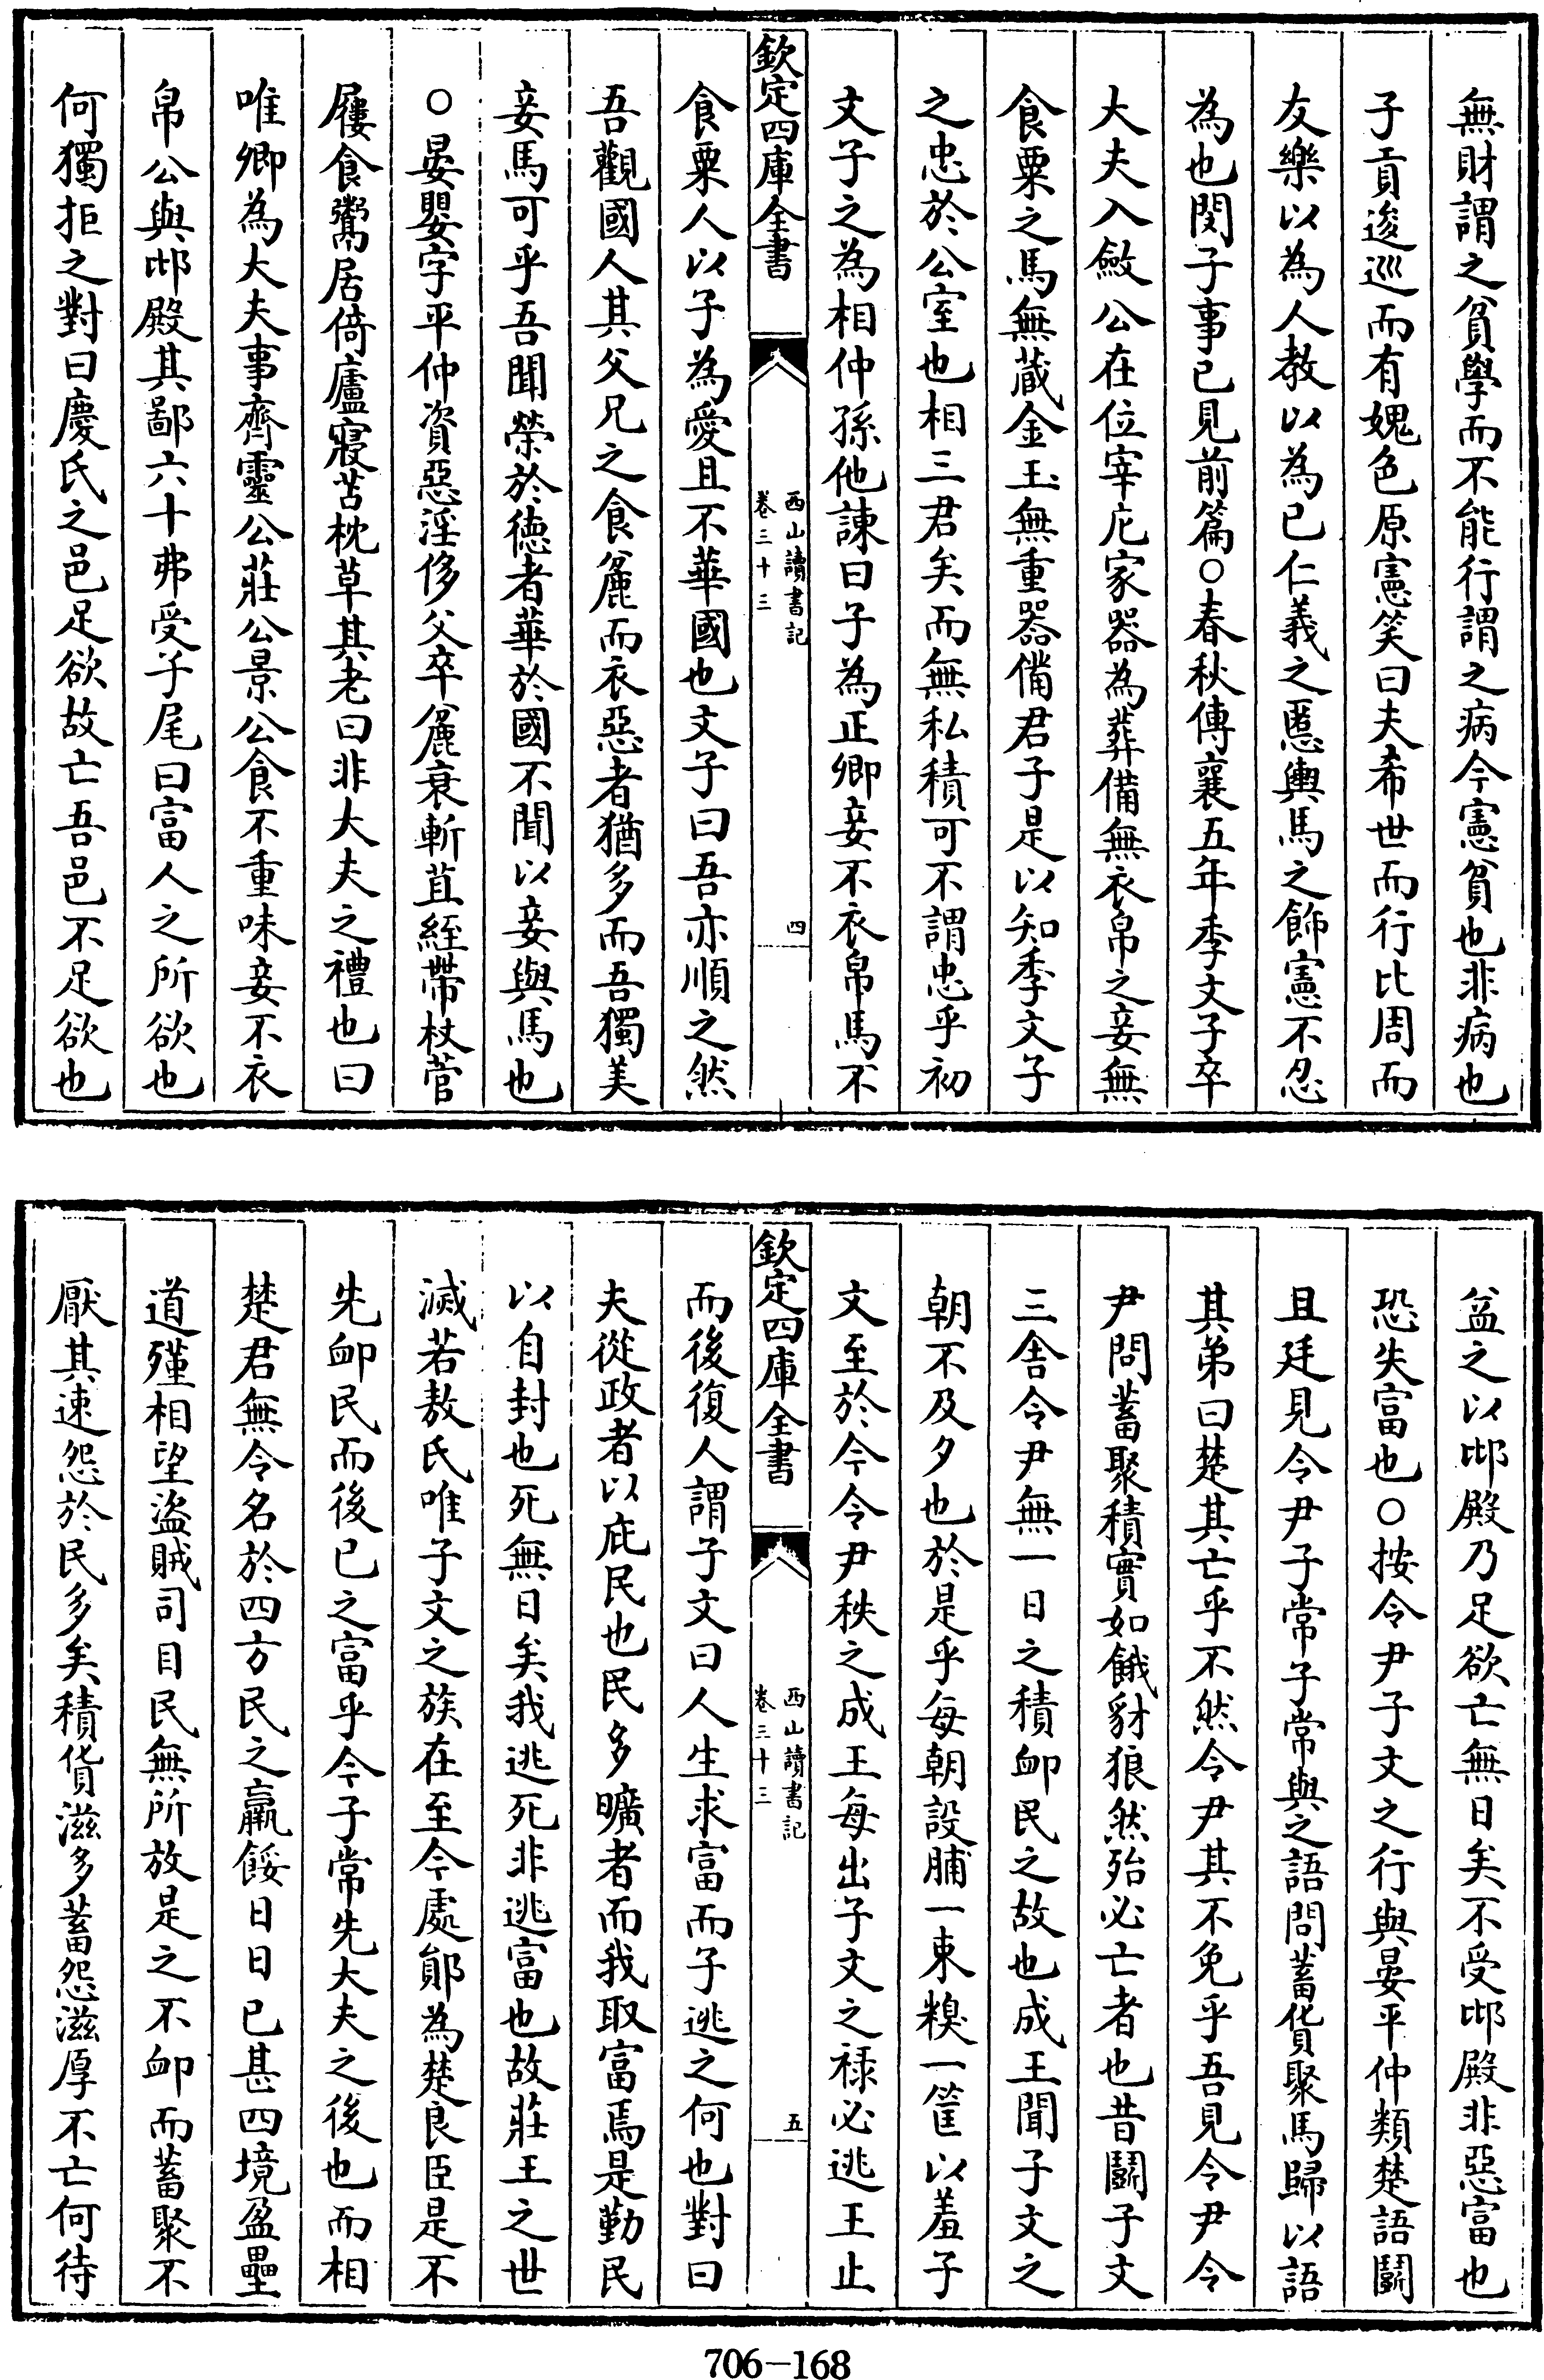 無財謂之貧學而不能行謂之病今憲貧也非病也
子貢逡巡而有媿色原憲笑曰夫希世而行比周而
友樂以為人教以為已仁義之慝輿馬之飾憲不忍
為也閔子事已見前篇○春秋傳襄五年季文子卒
大夫入斂公在位宰庀家器為葬備無衣帛之妾無
食粟之馬無蔵金玉無重器備君子是以知季文子
之忠於公室也相三君矣而無私積可不謂忠乎初
文子之為相仲孫他諫曰子為正卿妾不衣帛馬不
欽定四庫全書
西山讀書記
卷三十三
四
食粟人以子為愛且不華國也文子曰吾亦順之然
吾觀國人其父兄之食麄而衣惡者猶多而吾獨美
妾馬可乎吾聞榮於徳者華於國不聞以妾與馬也
○晏嬰字平仲資惡淫侈父卒麄衰斬苴絰帶杖菅
屨食鬻居倚廬寢苫枕草其老曰非大夫之禮也曰
唯卿為大夫事齊靈公莊公景公食不重味妾不衣
帛公與邶殿其鄙六十弗受子尾曰富人之所欲也
何獨拒之對曰慶氏之邑足欲故亡吾邑不足欲也
益之以邶殿乃足欲亡無日矣不受邶殿非惡富也
恐失富也○按令尹子文之行與晏平仲類楚語鬭
且廷見令尹子常子常與之語問蓄貨聚馬歸以語
其弟曰楚其亡乎不然令尹其不免乎吾見令尹令
尹問蓄聚積實如餓豺狼然殆必亡者也昔鬭子文
三舍令尹無一日之積衈民之故也成王聞子文之
朝不及夕也於是乎每朝設脯一束糗一筐以羞子
文至於今令尹秩之成王每出子文之禄必逃王止
欽定四庫全書
西山讀書記
卷三十三
五
而後復人謂子文曰人生求富而子逃之何也對曰
夫從政者以庇民也民多曠者而我取富焉是勤民
以自封也死無日矣我逃死非逃富也故莊王之世
滅若敖氏唯子文之族在至今處鄖為楚良臣是不
先衈民而後已之富乎今子常先大夫之後也而相
楚君無令名於四方民之羸餒日日已甚四境盈壘
道殣相望盜賊司目民無所放是之不衈而蓄聚不
厭其速怨於民多矣積貨滋多蓄怨滋厚不亡何待
706-168